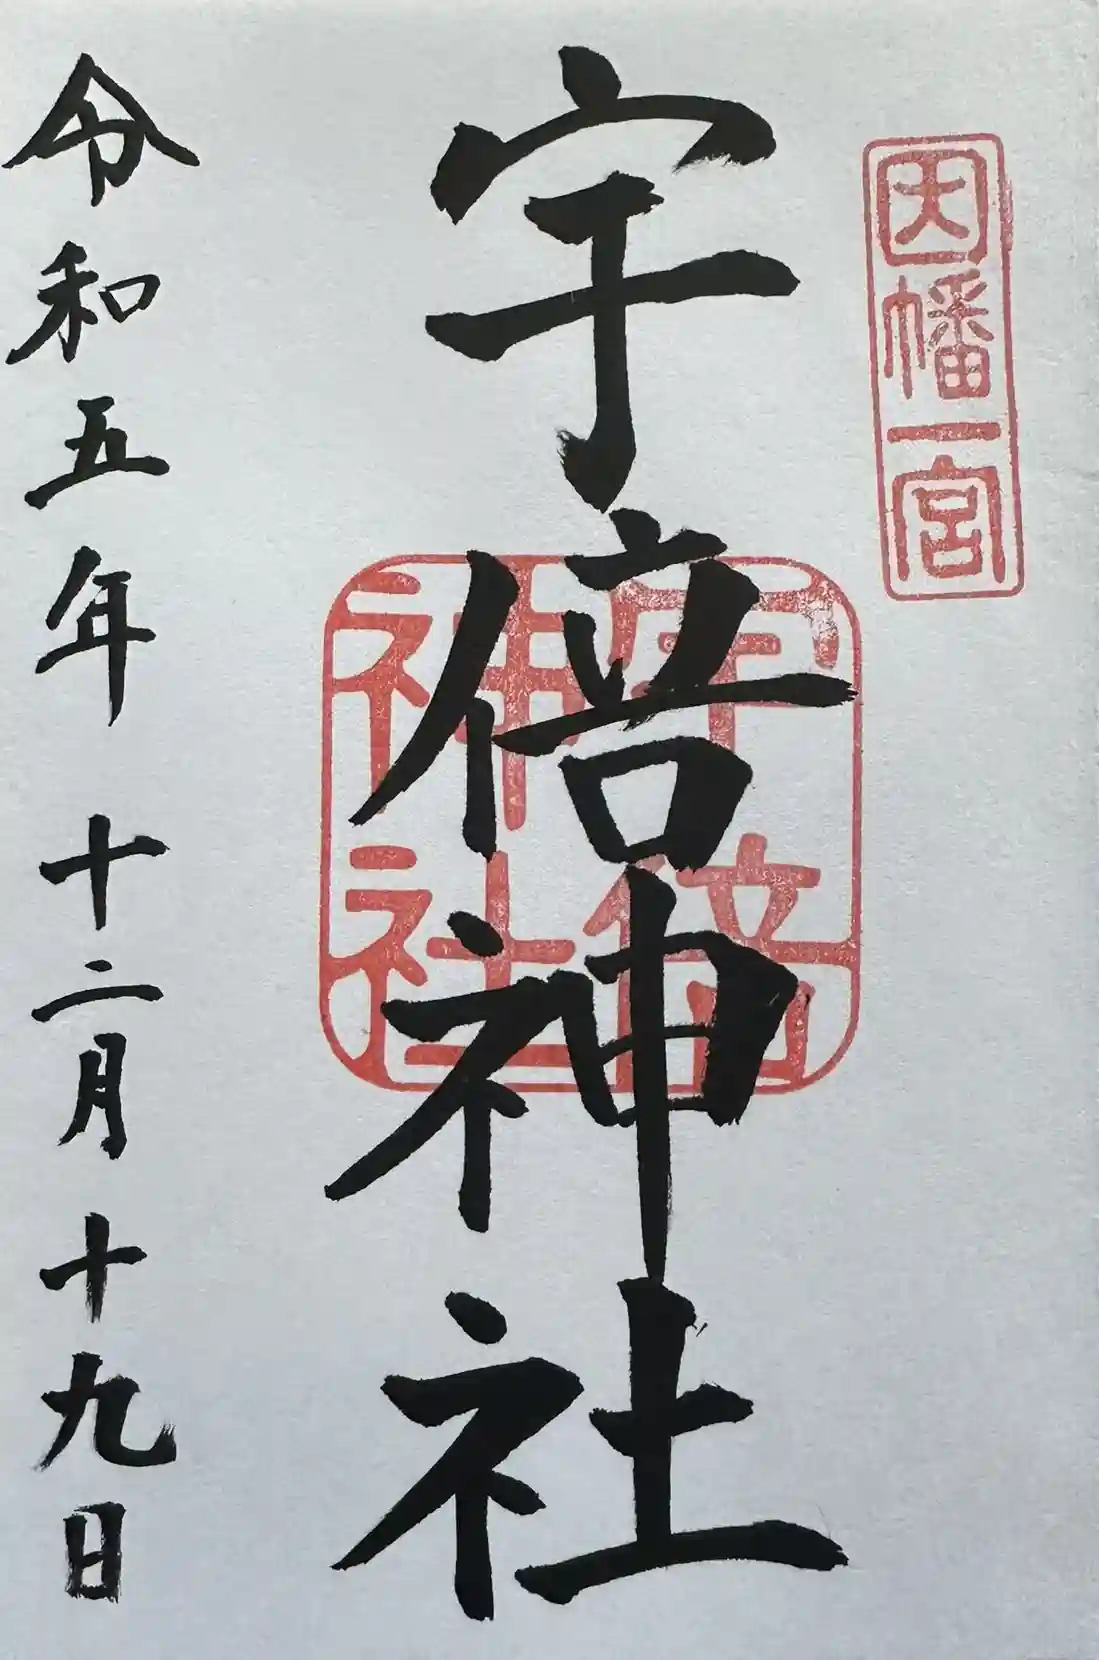 因幡一宮
宇倍神社
宇倍
神社
令和五年 十二月 十九日